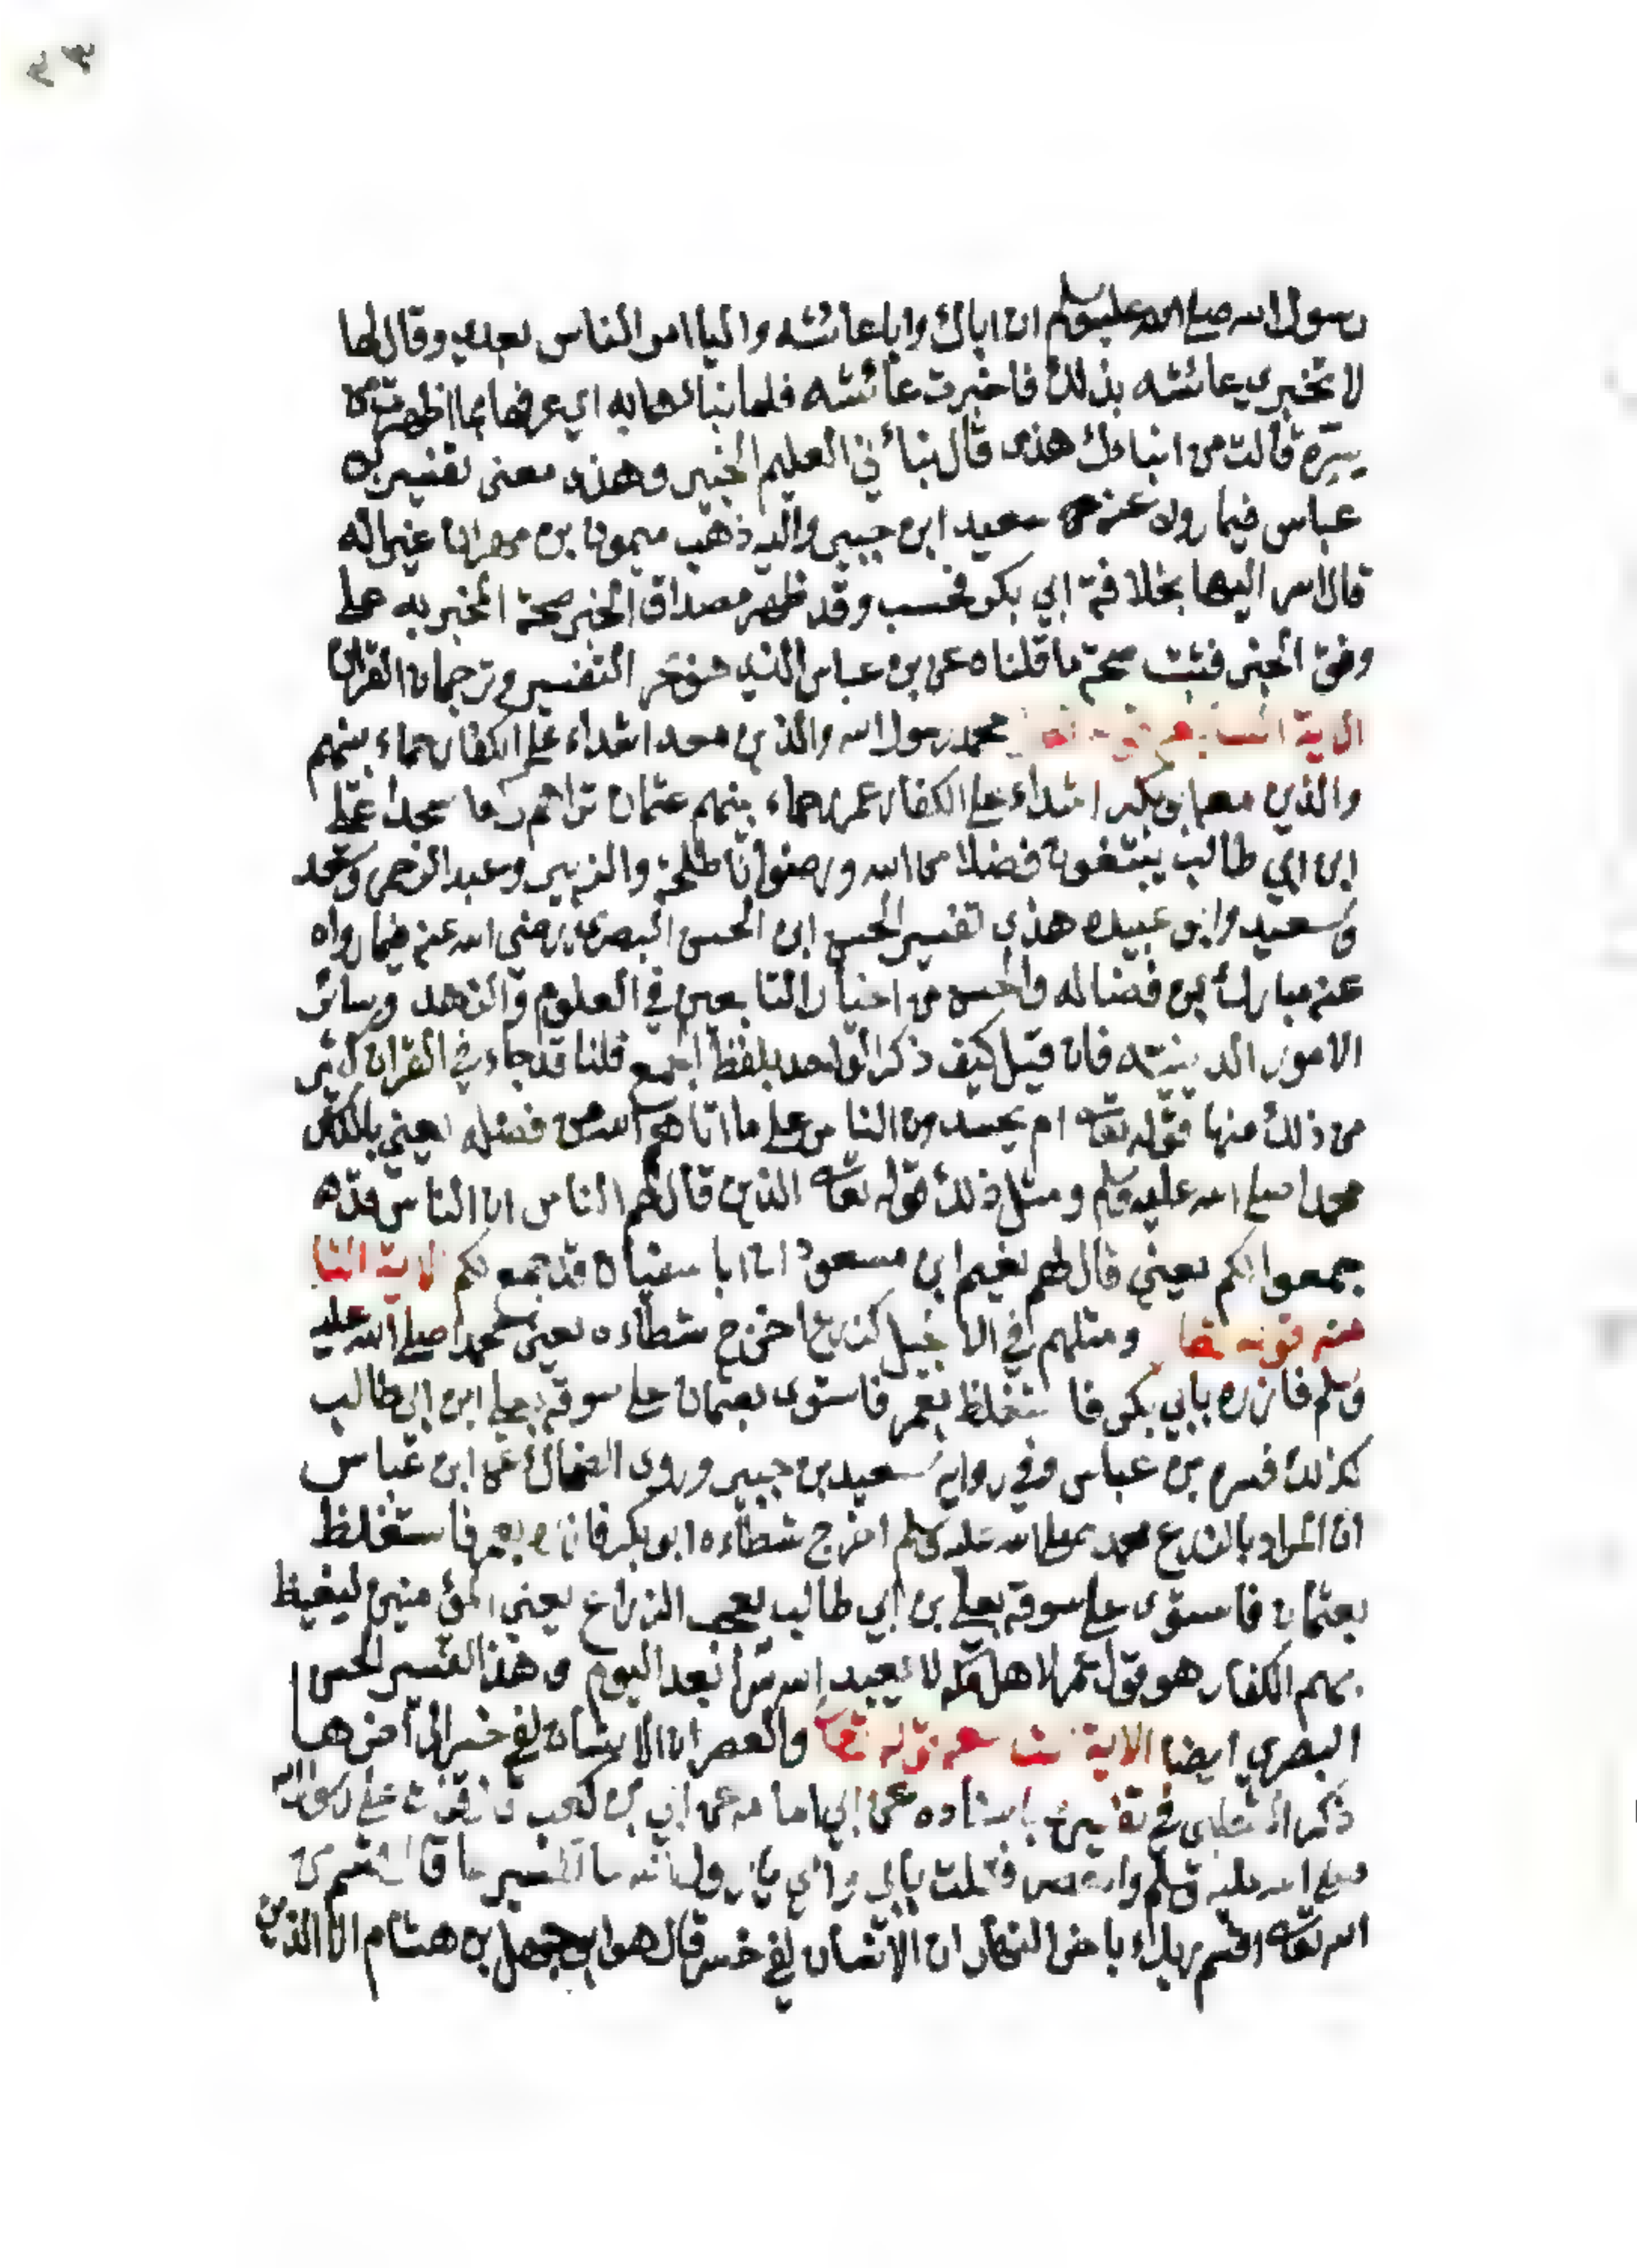 ٢٣
رسول الله صلى الله عليه وسلم ان اباك وابا عائشه واليا امر الناس بعدي وقال لها
لا تخبري عائشه بذلك فاخبرت عائشه فلما نباها به اي عرفها بما اظهرت من
سره قالت من انباءك هذى قال نبأني العليم الخبير وهذه معنى تفسير بن
عباس فيما رواه عنه سعيد ابن جبير والذي ذهب ميمون بن مهران
قال اسر اليها بخلافة ابي بكر فحسب وقد ظهر مصداق الخبر صحة المخبر به على
وفق الخبر فثبت صحة ما قلناه عن بن عباس الذي هو بحر التفسير وترجمان القران
الاية السابعة قوله تعا محمد رسول الله والذين معه اشداء على الكفار رحماء بينهم
والذين معه ابي بكر اشداء على الكفار عمر رحماء بينهم عثمان تراهم ركعا سجدا علي
ابن ابي طالب يبتغون فضلا من الله ورضوانا طلحة والزبير وعبد الرحمن وسعد
وسعيد وابو عبيده هذى تفسير الحسن ابن الحسن البصري رضي الله عنه فيما رواه
عنه مبارك بن فضاله والحسن من اخيار التابعين في العلوم والزهد وسائر
الامور الدينيه فان قيل كيف ذكر الواحد بلفظ الجمع قلنا قد جاء في القران كثير
من ذلك منها قوله تعا ام يحسدون الناس على ما اتاهم الله من فضله يعني
محمدا صلى الله عليه وسلم ومثل ذلك قوله تعا الذين قال لهم الناس ان الناس قد
جمعوا لكم يعني قال لهم نعيم ابن مسعود ان ابا سفيان قد جمع لكم الاية الثا
منه قوله تعا ومثلهم في الانجيل كزرع اخرج شطاءه يعني محمدا صلى الله عليه
وسلم فازره بابي بكر فاستغلظ بعمر فاستوى بعثمان على سوقه بعلي ابن ابي طالب
كذلك فسره بن عباس وفي رواية سعيد بن جبير وروى الضحاك عن ابن عباس
ان المراد بالزرع محمد صلى الله عليه وسلم اخرج شطاءه ابو بكر فازره بعمر فاستغلظ
بعثمان فاستوى على سوقه بعلي بن ابي طالب يعجب الزراع يعني المؤمنين ليغيظ
بهم الكفار هو قول عمر لاهل مكه لا يعبد الله سرا بعد اليوم وهذا التفسير الحسن
البصري ايضا الاية قوله تعا والعصر ان الانسان لفي خسر الى اخرها
ذكر الثعلبي في تفسيره باسناده عن ابي امامه عن ابي بن كعب قال قرأت على رسول الله
صلى الله عليه وسلم والعصر فقلت بابي وامي يا رسول الله ما تفسيرها قال قسم من
الله تعا اقسم ربك باخر النهار ان الانسان لفي خسر قال هو ابو جهل بن هشام الا الذين